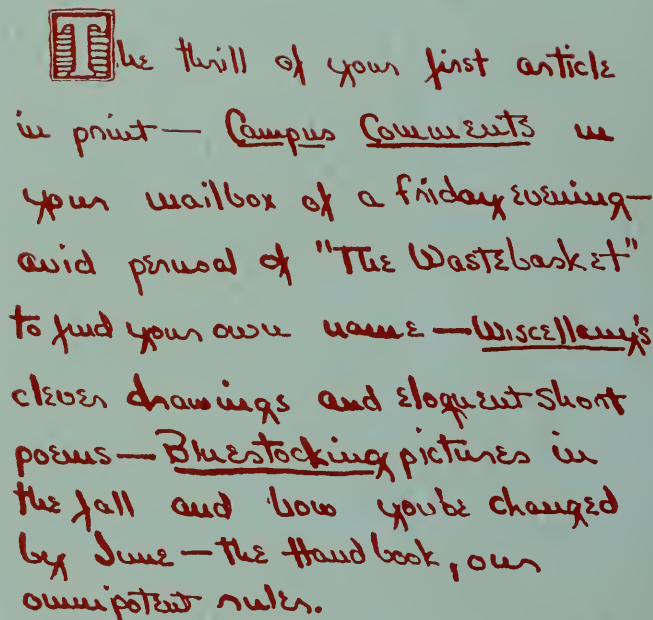 The thrill of your first article
in print — Campus Comments in
your mailbox of a friday evening —
avid perusal of "The Wastebasket"
to find your own name — Miscellany's
clever drawings and eloquent short
poems — Bluestocking pictures in
the fall and how you've changed
by June — the Handbook, our
omnipotent rules.